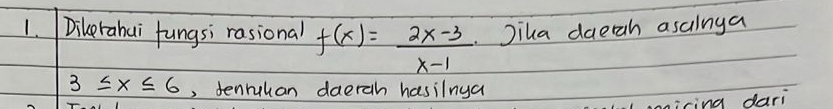 1. Diketahui fungsi rasional f(x) = 2x-3 / x-1. Jika daerah asalnya
3 ≤ x ≤ 6, tentukan daerah hasilnya
dari